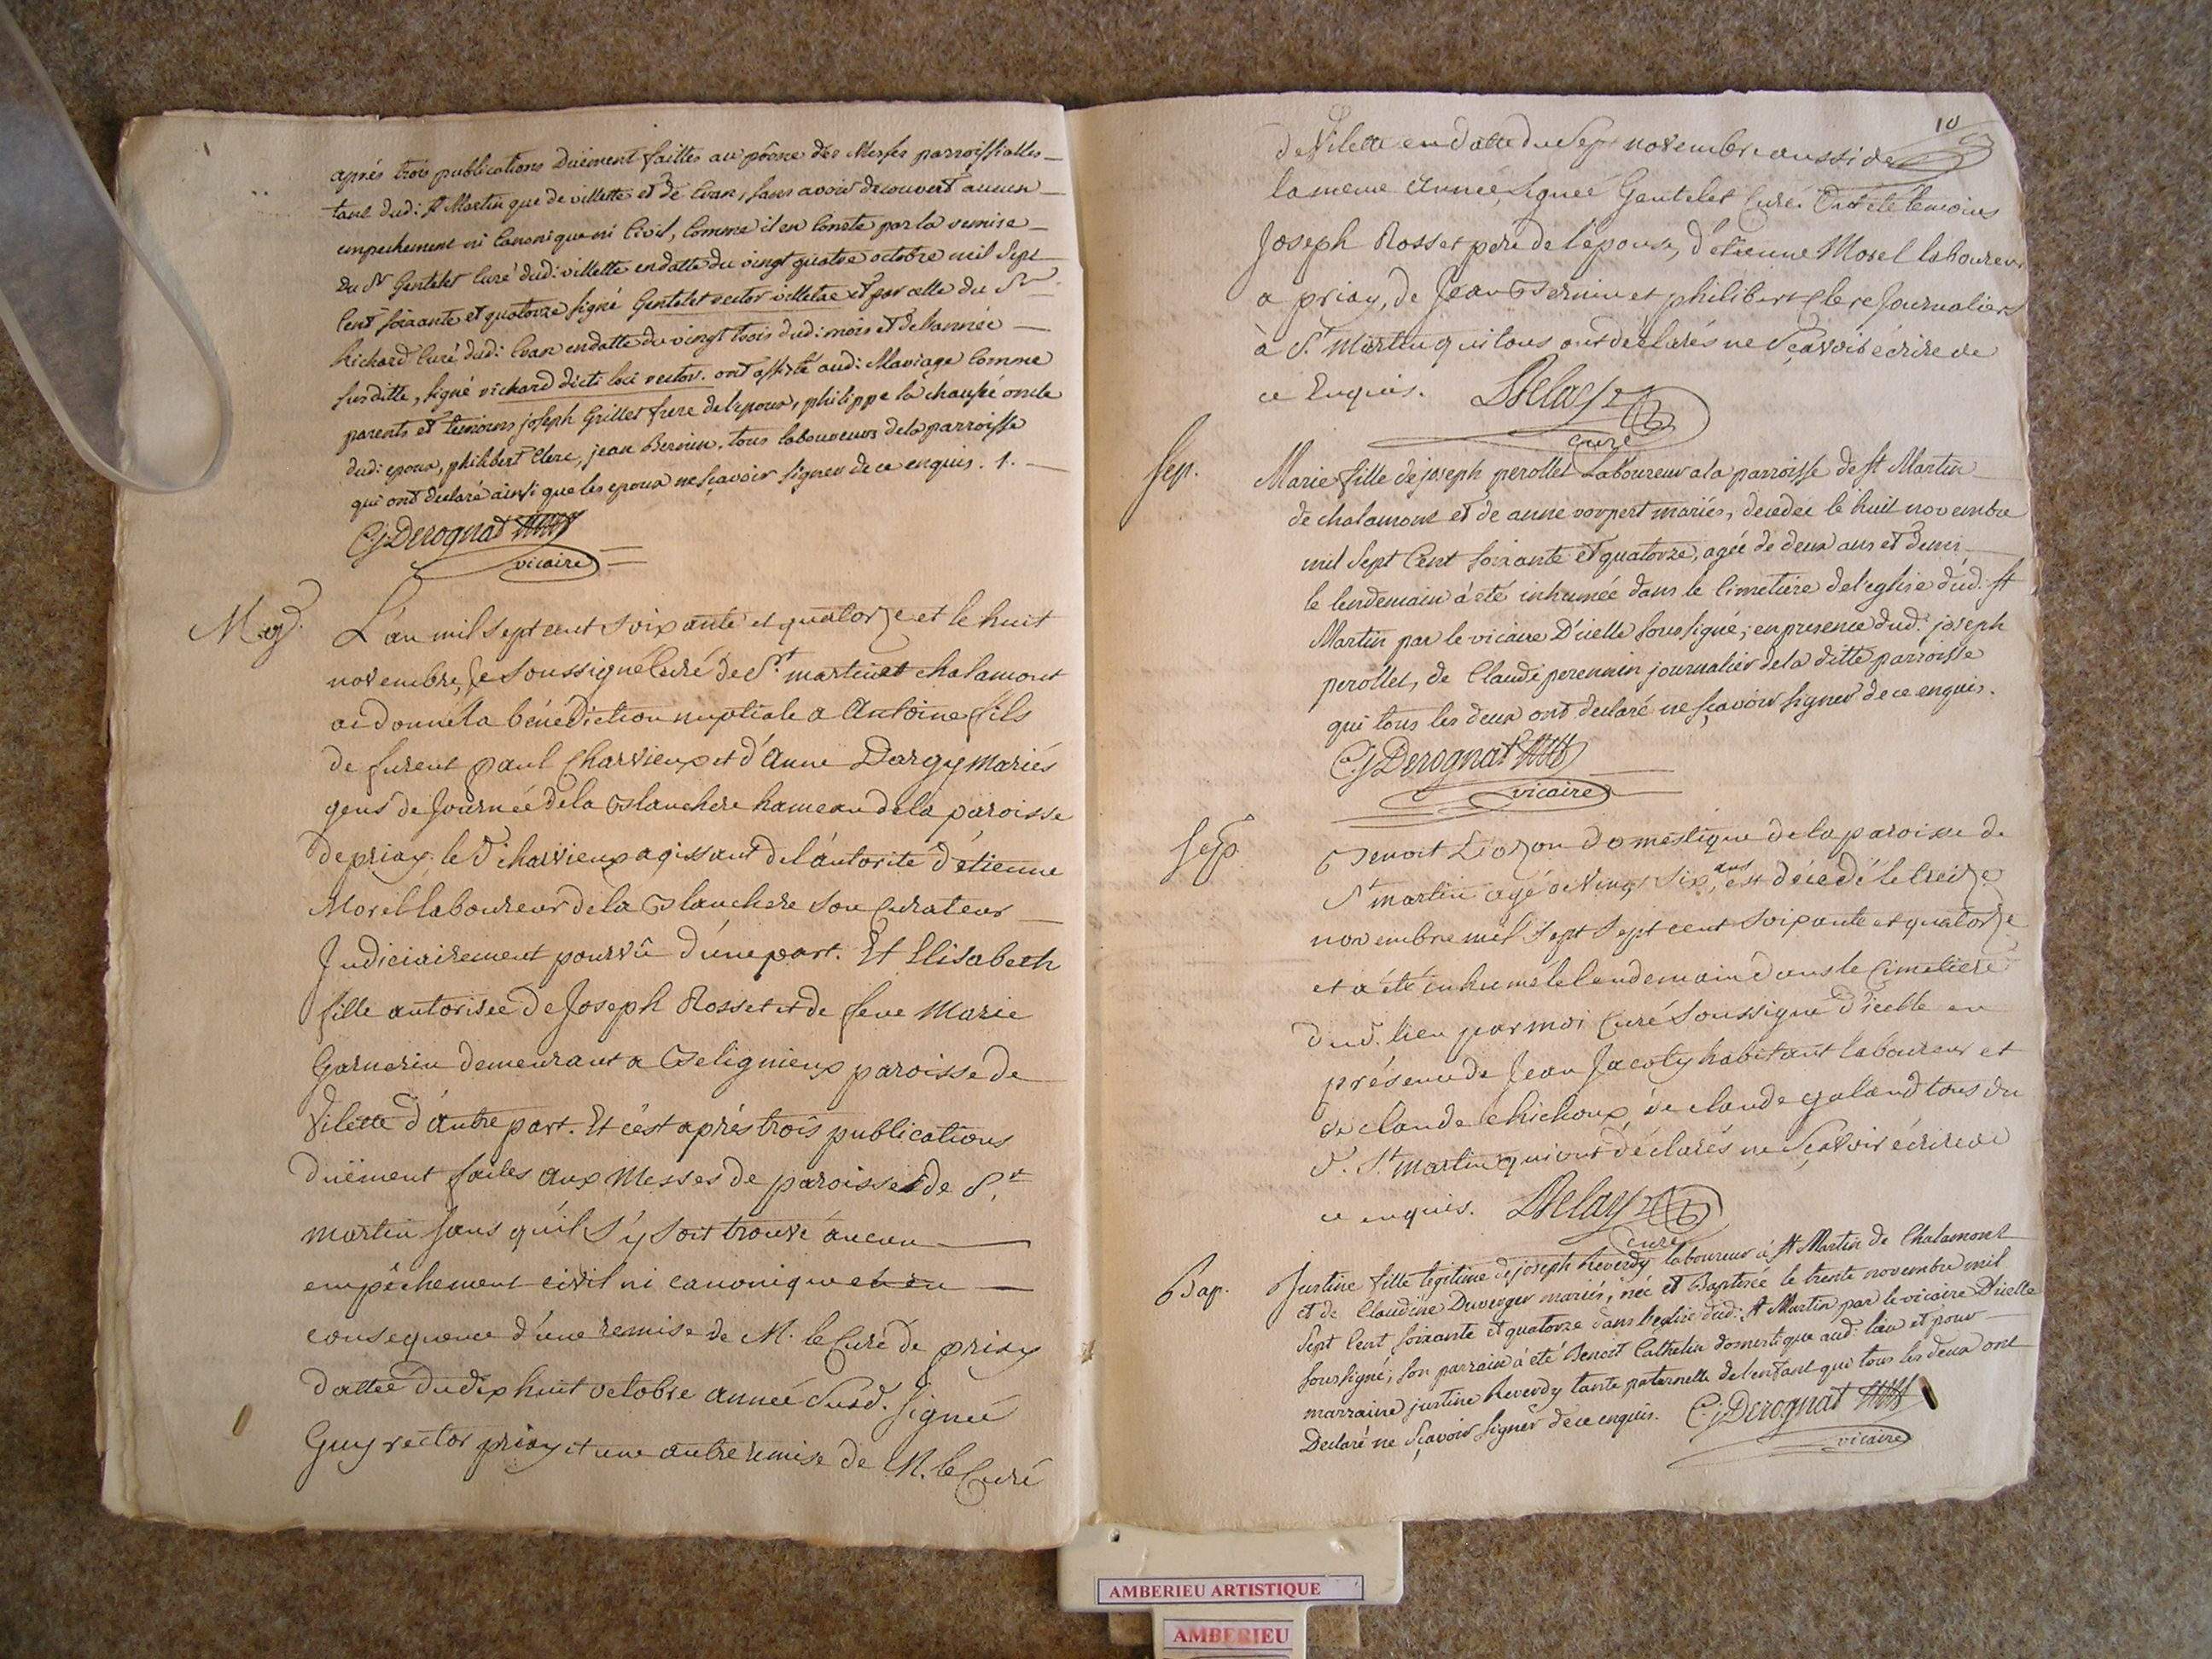 après trois publications Duëment faittes au pôrne des Messes parroissialles
tant dud: st Martin que de villette et de Cran, sans avoir decouvert aucun
empechement ni Canonique ni Civil, Comme il en Conste par la remise
Du Sr Gentelet Curé dud: villette en datte du vingt quatre octobre mil Sept
Cent soixante et quatorze signé Gentelet rector villetae et par celle du Sr
Richard Curé dud: Cran en datte du vingt trois dud: mois et de l'année
susditte, signé richard dicti loci rector. ont assisté aud: Mariage Comme
parents et temoins joseph Grillet frere de l'epoux, philippe la chaupée oncle
dud: epoux, philibert Clerc, jean Bernin, tous laboureurs de la parroisse
qui ont declaré ainsi que les epoux ne sçavoir signer de ce enquis. 1.
CjDerognat
vicaire
Mag.
L'an mil sept cent soixante et quatorze et le huit
novembre, Je soussigné Curé de St. martin et chalamont
ai donné la bénédiction nuptiale a Antoine fils
de furent paul Charvieux et d'Anne Dargy mariés
gens de Journée de la Blanchere hameau de la paroisse
de priay. le d. charvieux agissant de l'autorité d'étienne
Morel laboureur de la Blanchere son Curateur
Judiciairement pourvû d'une part. Et Elisabeth
fille autorisée de Joseph Rosset et de feue Marie
Garnerin demeurant a Belignieux paroisse de
Vilette d'autre part. Et c'est après trois publications
duëment faites aux Messes de paroisse de St.
martin sans qu'il s'y soit trouvé aucun
empêchement civil ni canonique et en
consequence d'une remise de M. le Curé de priay
dattée du dix huit octobre année susd. signée
Guy rector priay et une autre remise de M. le Curé
10
de Vilette en datte du Sept novembre aussi de
la meme Année, signée Gentelet Curé. Ont été temoins
Joseph Rosset pere de l'epouse, d'étienne Morel laboureur
a priay, de Jean Bernin et philibert Clerc Journaliers
à St. Martin qui tous ont déclarés ne Sçavoir écrire de
ce Enquis. Delay
curé
Sep.
Marie fille de joseph perollet Laboureur a la parroisse de st Martin
de chalamont et de anne mariés, decedée le huit novembre
mil Sept Cent soixante et quatorze, agée de deux ans et demi
le lendemain à été inhumée dans le Cimetiere de l'eglise dud. st
Martin par le vicaire D'icelle soussigné, en presence dud. joseph
perollet, de Claude perennin journalier de la ditte parroisse
qui tous les deux ont declaré ne sçavoir signer de ce enquis.
CjDerognat
vicaire
Sep.
Benoit Liozon domestique de la paroisse de
St martin agé de Vingt Six ans, est décedé le treize
novembre mil sept sept cent soixante et quatorze
et a été inhumé le lendemain dans le Cimetiere
dud. lieu par moi Curé soussigné d'icelle en
présence de Jean Jacoty habitant laboureur et
de claude chichoux, de claude galand tous du
d. St. martin qui ont déclarés ne Sçavoir écrire de
ce enquis. Delay
curé
Bap.
Justine fille legitime de joseph Reverdy laboureur à st Martin de Chalamont
et de Claudine Duverger mariés, née et Baptisée le trente novembre mil
Sept Cent soixante et quatorze dans l'eglise dud: st Martin par le vicaire D'icelle
soussigné, son parrain à été Benoit Cathelin domestique aud: lieu et pour
marraine justine Reverdy tante paternelle de l'enfant qui tous les deux ont
Declaré ne sçavoir signer de ce enquis. CjDerognat
vicaire
AMBERIEU ARTISTIQUE
AMBERIEU